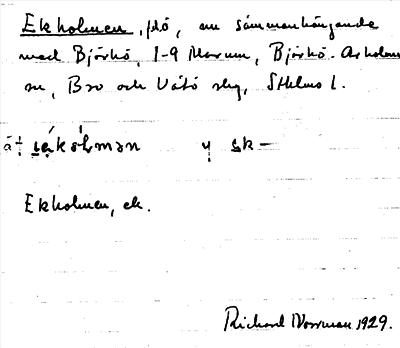 Ekholmen, fdö, nu sammanhängande
med Björkö, 1-9 Marum, Björkö-Arholma
sn, Bro och Vätö slg, Sthlms l.
Ekholmen, ek.
Richard Norrman 1929.